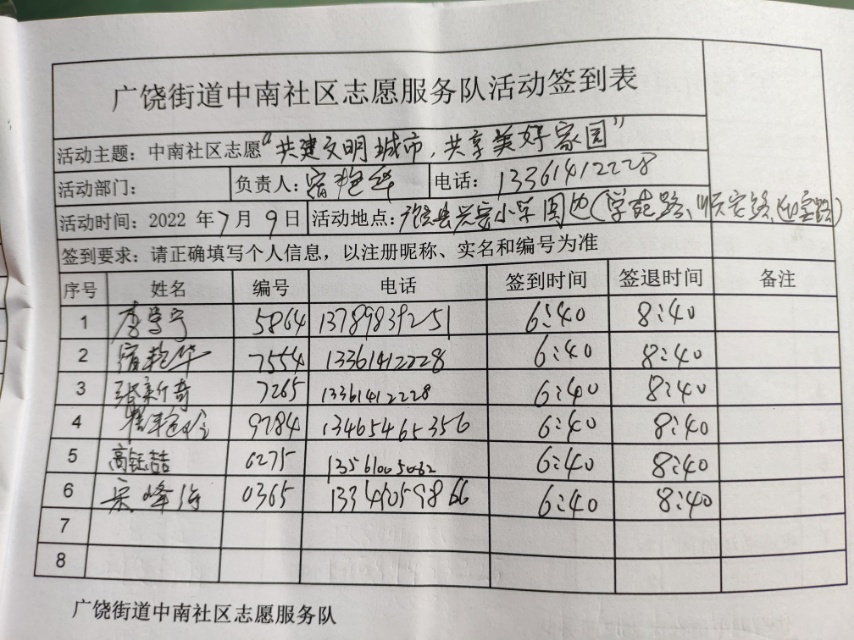 广饶街道中南社区志愿服务队活动签到表
活动主题：中南社区志愿“共建文明城市，共享美好家园”
活动部门： 负责人：宿艳华 电话：13361412228
活动时间：2022 年7月9日 活动地点：广饶县兴安小学周边（学苑路、顺安路、迎宾路）
签到要求：请正确填写个人信息，以注册昵称、实名和编号为准
序号 姓名 编号 电话 签到时间 签退时间 备注
1 李学宁 5864 13789839251 6:40 8:40
2 宿艳华 7554 13361412228 6:40 8:40
3 张新奇 7265 13361412228 6:40 8:40
4 9784 13465465356 6:40 8:40
5 高钰喆 6275 6:40 8:40
6 宋峰海 0365 6:40 8:40
7
8
广饶街道中南社区志愿服务队